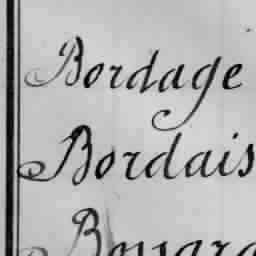 Bordage
Bordais